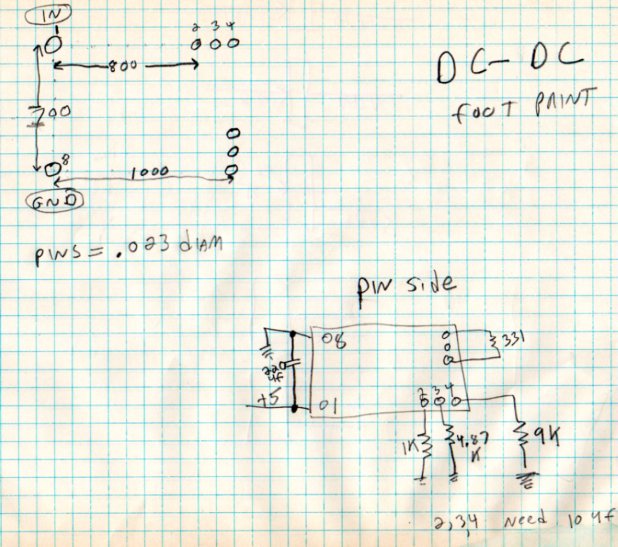 IN
1
2 3 4
800
DC-DC
FOOT PRINT
700
8
1000
GND
PINS = .023 DIAM
PIN Side
08
331
220
4f
+5
01
2 3 4
1K
4.87
K
9K
2,34 Need 10 4f